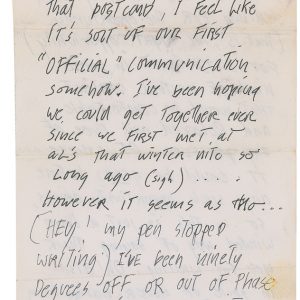 that postcard, I feel like
it's sort of our first
"OFFICIAL" communication
somehow. I've been hoping
we could get together ever
since we first met, at
AL's that winter nite so
long ago (sigh) . . . . .
However it seems as tho...
(HEY! my pen stopped
writing) I've been ninety
Degrees OFF OR OUT OF Phase